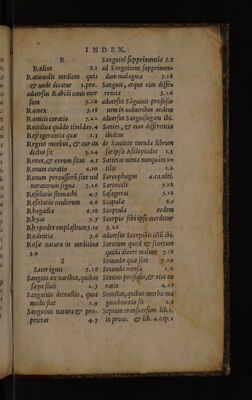 INDEX.
R
Radius 8.1
Rationalis medicus quis
& unde dicatur 1.pro.
adversus Rabidi canis mor
sum 5.28
Ramex 7.18
Ramicis curatio 7.22
Rectduæ quado timēda. 4
Refrigerantia quæ 2
Regius morbus, & cur ita
dictus sit 3.24
Renes, & eorum situs 4.1
Renum curatio 4.10
Renum percussorū sive vul
neratorum signa 5.26
Resolutio stomachi 4.5
Resolutio oculorum 6.6
Rhogadia 6.18
Rhyas 7.7
Rhypodes emplastrum 5.19
Rodentia 5.6
Rosæ natura in medicina
3.9
S
Sacer ignis 5.28
Sanguis ex naribus, quibus
sæpe fluit 2.1
Sanguinis detractio, quot
modis fiat 2.9
Sanguinis natura & pro-
prietas 4.5
Sanguinē supprimentia 5.1
ad Sanguinem supprimen-
dum malagma 5.18
Sanguis, atque eius diffe-
rentia 5.26
adversus Sāguinis profusio
nem in vulneribus eodem
adversus Sanguisugam ibi.
Sanies, & eius differentia
ibidem
de Sanitate tuenda librum
scripsit Asclepiades 1.3
Sanitas nimia nunquam u-
tilis 1.2
Sarcophagos 4.ca.ulti.
Sarcocele 7.18
Sasagorai 5.18
Scapula 8.1
Scoptula eodem
Scorpio sibi ipse medetur
5.26
adversus Scorpionis ictū ibi.
Scrotum quod & scortum
quida dicere malunt 7.18
Secundæ quæ sint 7.29
Secunda mensa 1.2
Seminis profusio, & eius cu
ratio 4.21
Senectus, quibus morbis ma
gis obnoxia sit 2.1
Septum transversum lib.1.
in proœ. & lib. 4.cap.1